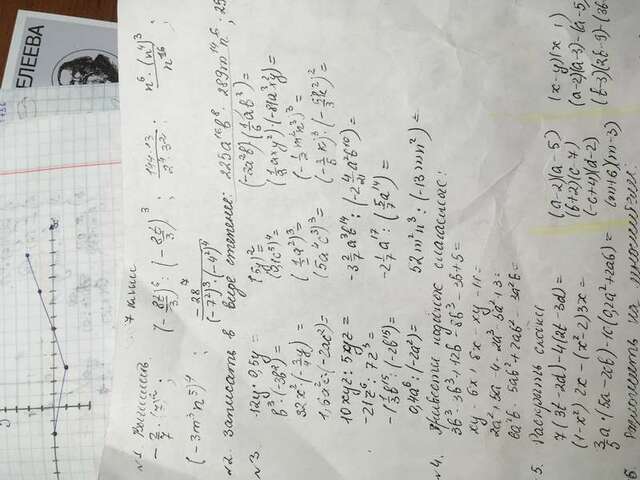 ЕЛЕЕВА
7 класс
№1. Вычислить
(-8t/3)^6 : (-8t/3)^3 ; 144·13/2^4·3^2 ; n^6·(n^4)^3/n^16 ;
(-3m^3n^5)^4 ; -28^7/(-7^2)^3·(-4^2)^4
№2. Записать в виде степени: 225a^16b^8. 289m^14n^6, 25
№3. 12y·0,5y= (5y)^2= (-2a^2b)(1/6ab^3)=
b^3·(-3b^2)= (0,1c^5)^4= (1/9axy^2)·(-81a^3xy)=
32x^2·(-3/4y)= (1/2a^2)^3= (-1/2m^2n^3)^3
1,6a^2c·(-2ac^2)= (5a^4c^3)^3=
10xyz : 5xyz = -3 2/7a^3b^14 : (-2 4/21a^2b^10)=
-21z^6 : 7z^3= -2 1/7a^17 : (5/7a^14)=
-1 1/3b^15 : (-2b^15)=
0,4a^6 : (-2a^2)= 52m^2n^3 : (-13mn^2)=
№4. Привести подобные слагаемые:
3b^3-3b^3+12b-8b^3-3b+5=
xy-6x+8x-xy-11=
2a^2+5a-4-2a^3-5a^2+3=
6a^2b-5ab^2+2ab^2-3a^2b=
5. Раскрыть скобки
7(3t-2d)-4(2t-3d)= (a-2)(a-5) (x-y)(x
(1-x^2)·2x-(x^2-2)3x= (b+2)(c-7) (a-2)(a-3)-(a-5)
3/5a·(5a-2cb)-1c(0,2a^2+2ab)= (-c+4)(d-2) (t-3)(2t-9)-(3t
(m+6)(m-3)
6. Разложить на множители: